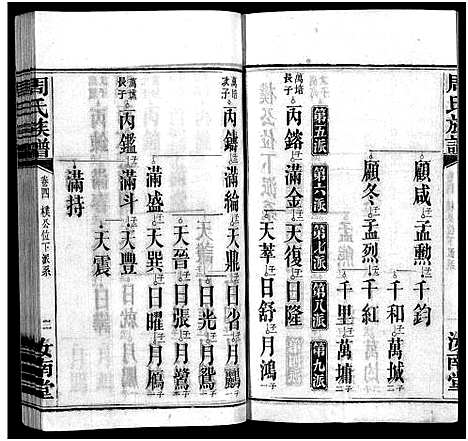 周氏族譜
顧咸 孟勲 千鈞
千和 萬城
顧冬 孟烈 千紅
千里 萬墉
第五派 第六派 第七派 第八派 第九派
丙鎔 滿金 天復 日隆
天萃 日舒 月鴻
萬培次子 丙鏞 滿綸 天鼎 日省 月鸝
天晉 日光 月鴛
日張 月鷺
滿盛 天巽 日曜 月鴈
萬城長子 丙鑑 滿斗 天豐
天震
滿持
周氏族譜 卷四 樸公位下派系 二 汝南堂